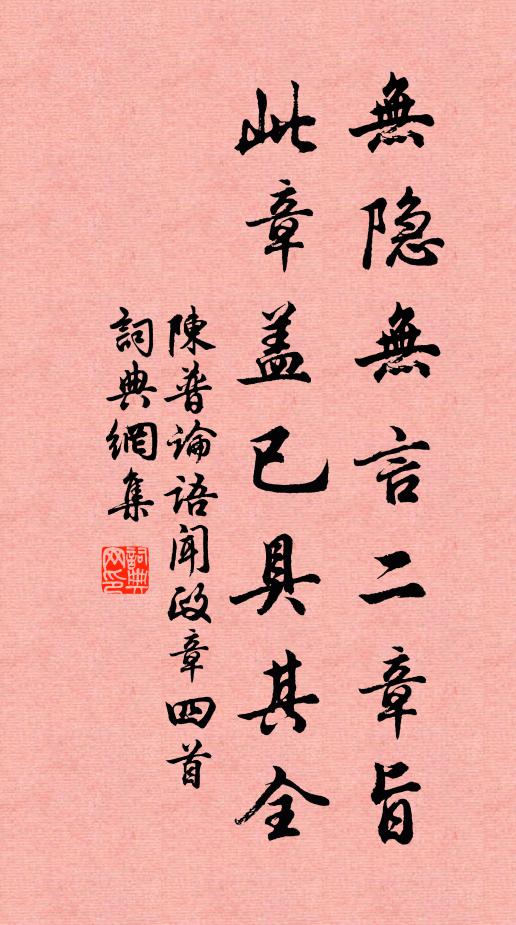 無隐無言二章旨
此章盖已具其全
陳普論語闻政章四首
詞典網集
詞典网印